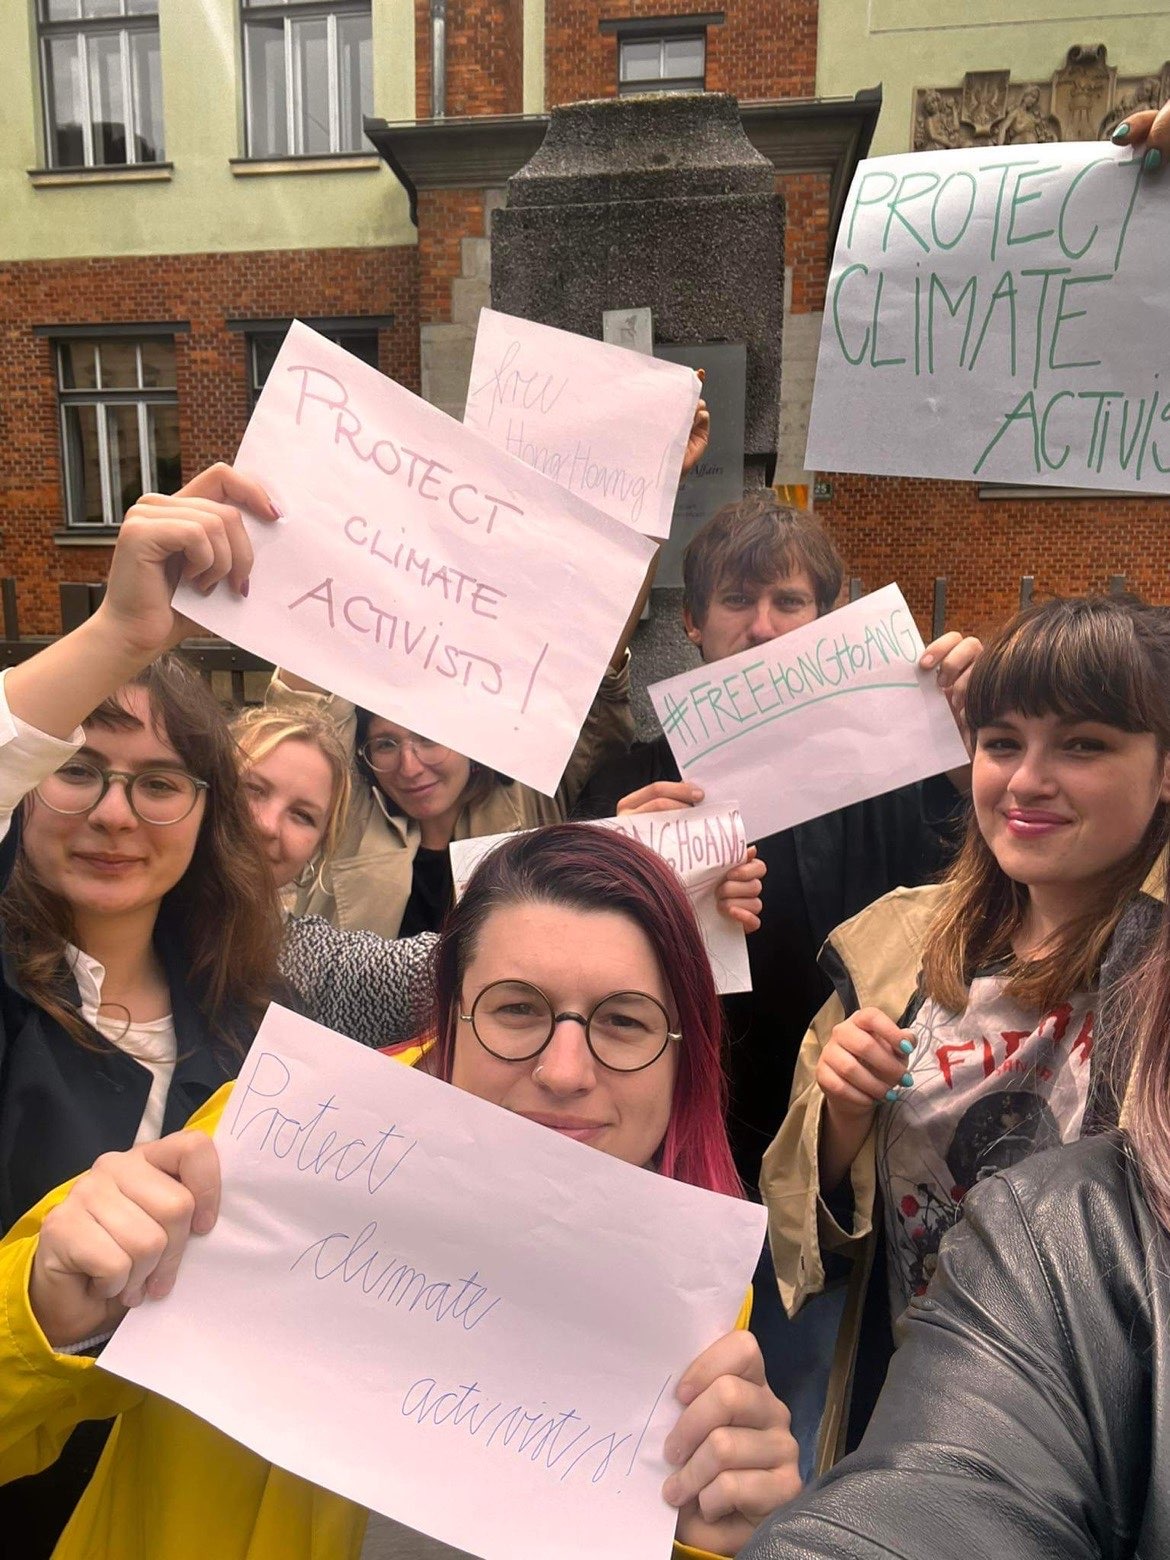 PROTECT
CLIMATE
ACTIVIS
free
Hong Hoang!
PROTECT
CLIMATE
ACTIVISTS!
Affairs
#FREEHONGHOANG
NGHOANG
FI
Protect
climate
activists!